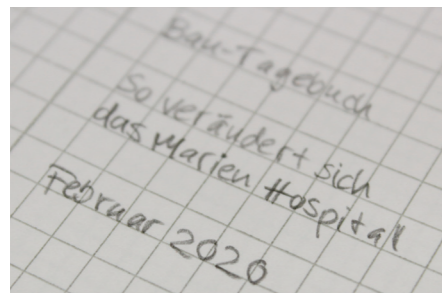 Bau-Tagebuch
So verändert sich
das Marien Hospital
Februar 2020